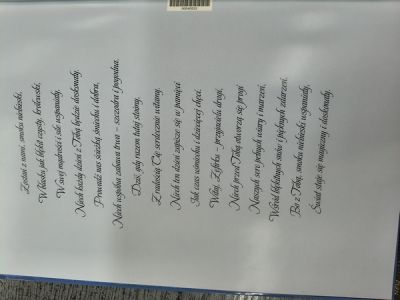 Zostań z nami, smoku niebieski,
W blasku jak błękit czysty, królewski,
W swej mądrości i sile wspaniały,
Niech każdy dzień z Tobą będzie doskonały.
Prowadź nas ścieżką śmiechu i dobra,
Niech wspólna zabawa trwa – szczodra i pogodna.
Dziś, gdy razem tutaj stoimy,
Z radością Cię serdecznie witamy.
Niech ten dzień zapisze się w pamięci
Jak czas uśmiechu i dziecięcej chęci.
Witaj, Zefirku – przyjacielu drogi,
Niech przed Tobą otworzą się progi
Naszych serc pełnych wiary i marzeń,
Wśród błękitnych snów i pięknych zdarzeń.
Bo z Tobą, smoku niebieski wspaniały,
Świat staje się magiczny i doskonały.